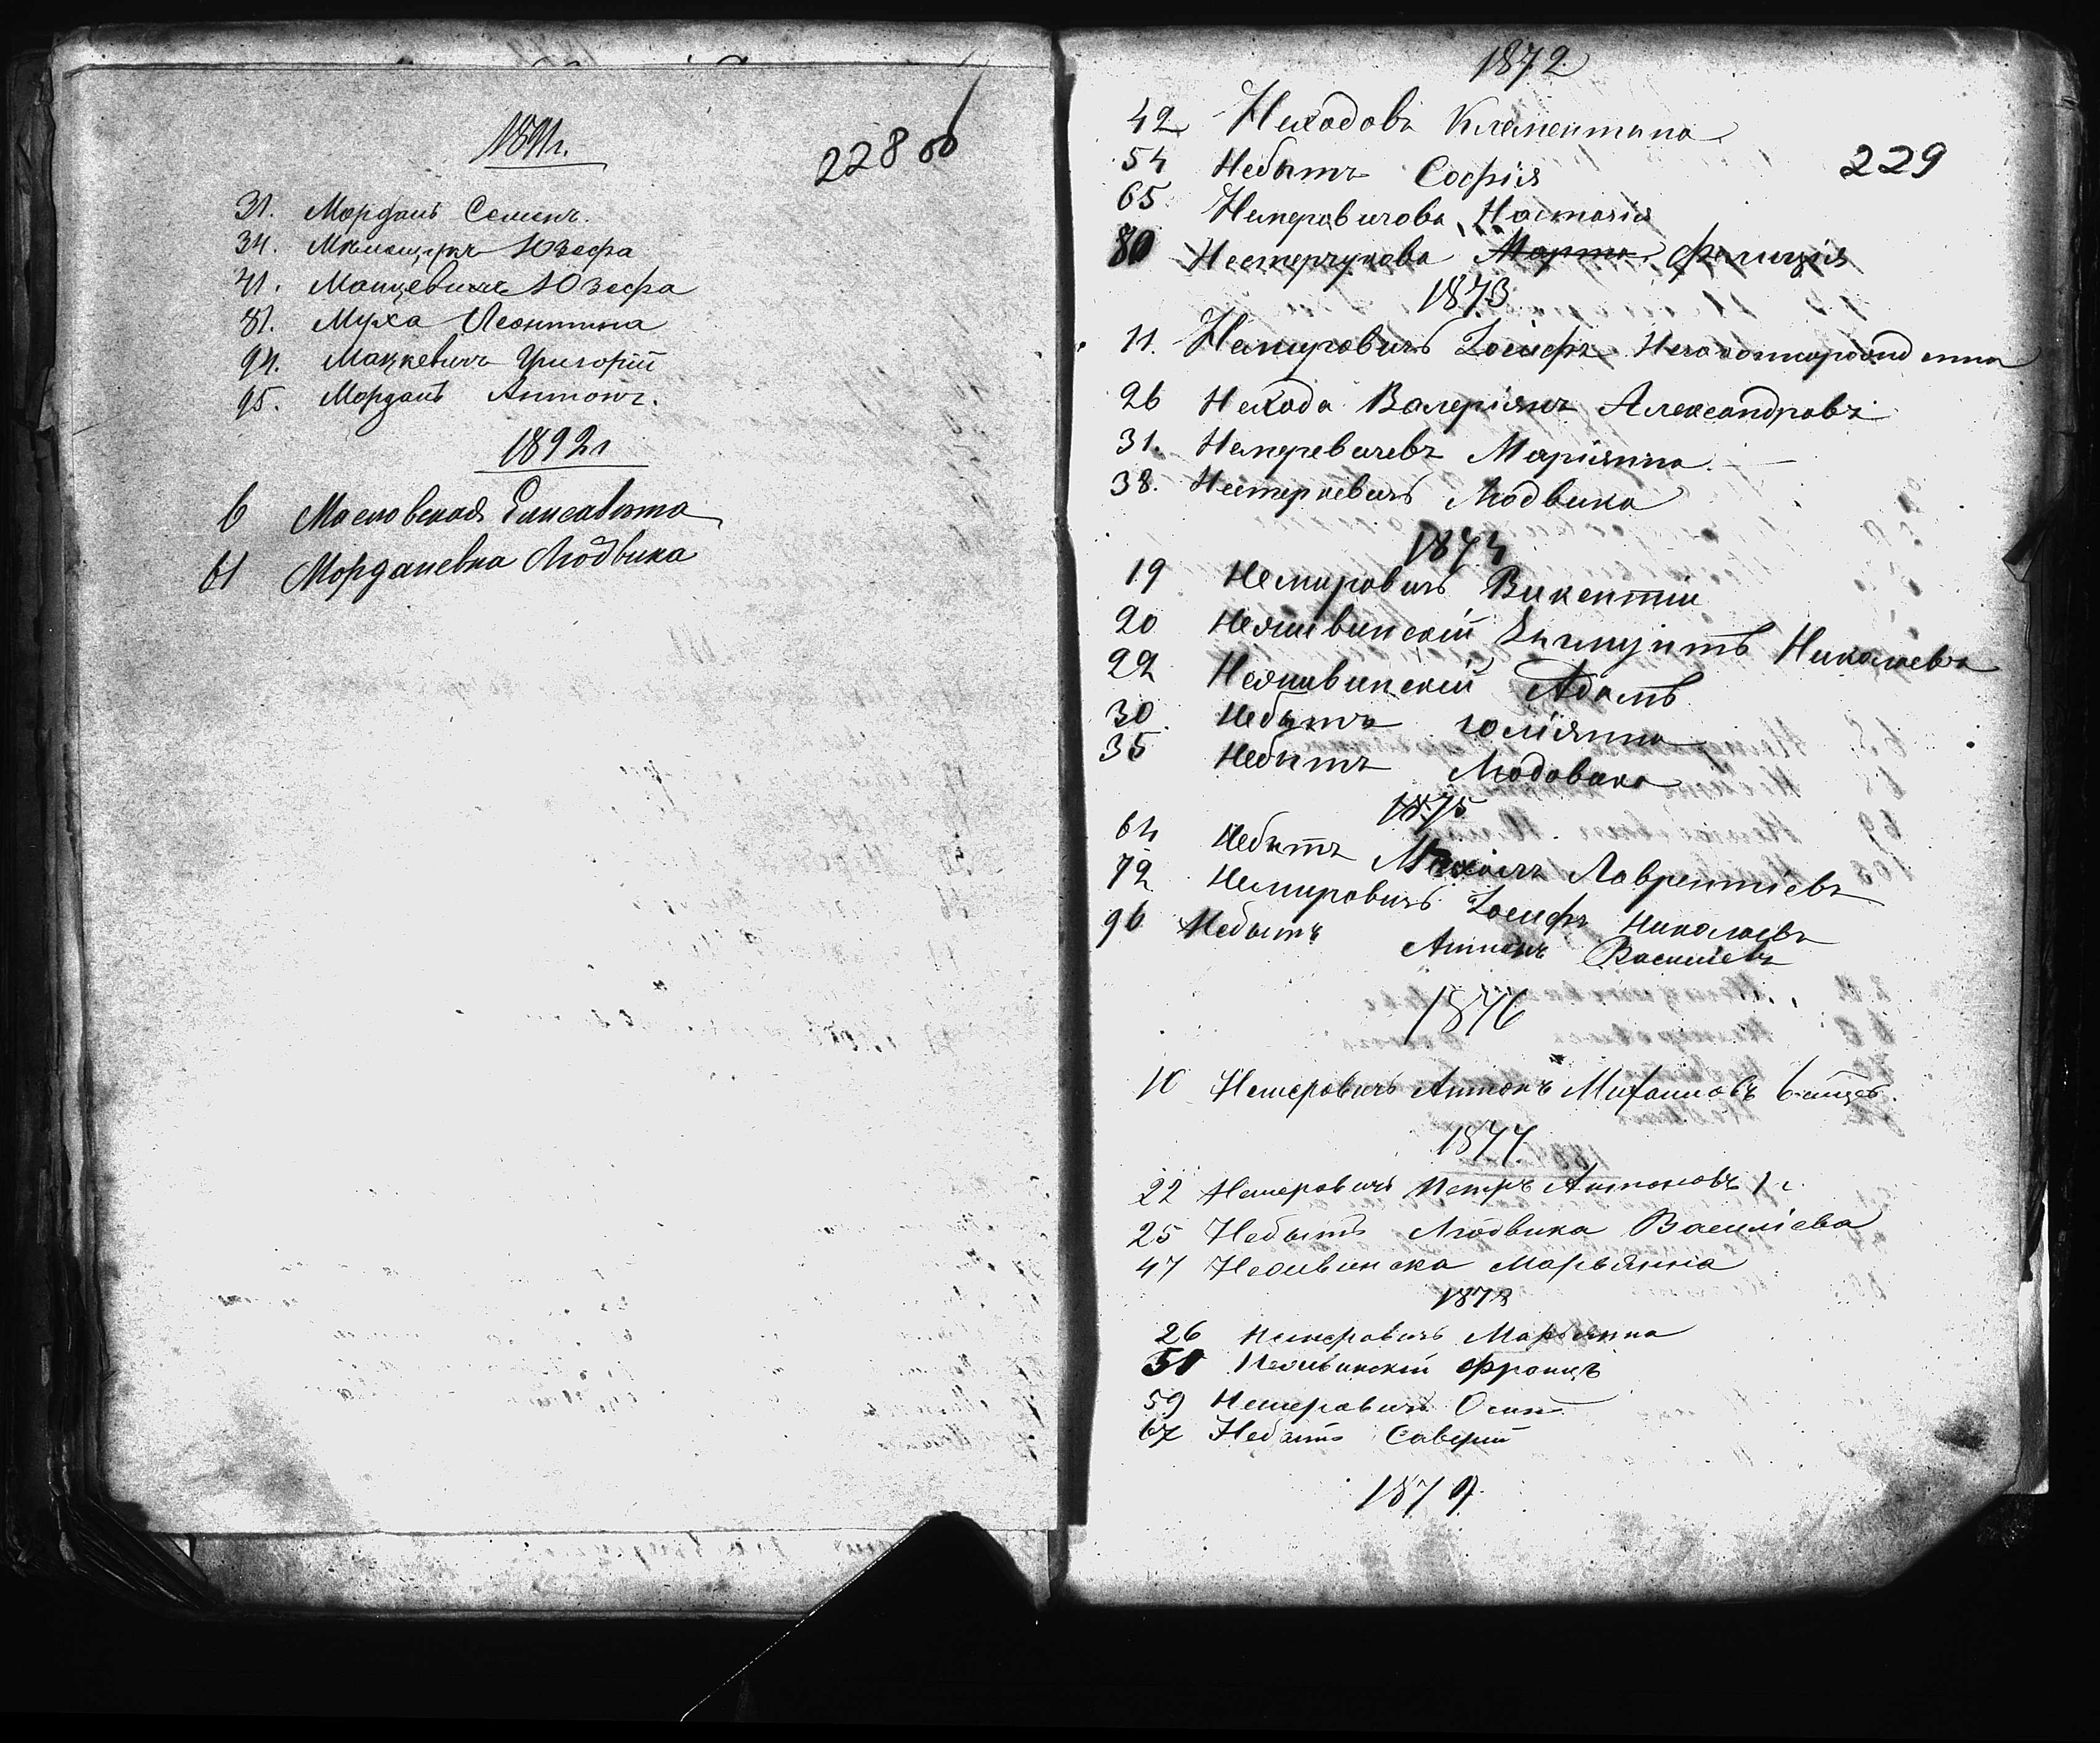 1891г.
228 об
31. Морданъ Семенъ.
34. Юзефа
41. Мацкевичъ Юзефа
81. Муха Леонтина
94. Мацкевичъ Григорій
95. Морданъ Антонъ.
1892г
6 Масловская Елисавѣта
61 Морданевна Людвика
1872
229
42 Неходовъ Клементина
54 Небытъ Софія
65 Немеровичова Настазія
80 Нестерчукова Марта Фелиція
1873
11. Немировичъ Іосифъ
26 Нехода Валеріянъ Александровъ
31. Маріянна
38. Нестеркевичъ Людвика
1874
19 Немировичъ Викентій
20 Неошвинскій Николаевъ
22 Неошвинскій Адамъ
30 Небытъ Юліянна
35 Небытъ Людовика
1875
64 Небытъ Михаилъ Лаврентіевъ
72 Немировичъ Іосифъ Николаевъ
96 Небытъ Антонъ Василіевъ
1876
10 Немеровичъ Антонъ Михаиловъ
1877
22 Немеровичъ Петръ Антоновъ 1 г.
25 Небытъ Людвика Василіева
47 Марьянна
1878
26 Немеровичъ Марьянна
51 Францъ
59 Немеровичъ Осип
67 Небытъ Саверій
1879